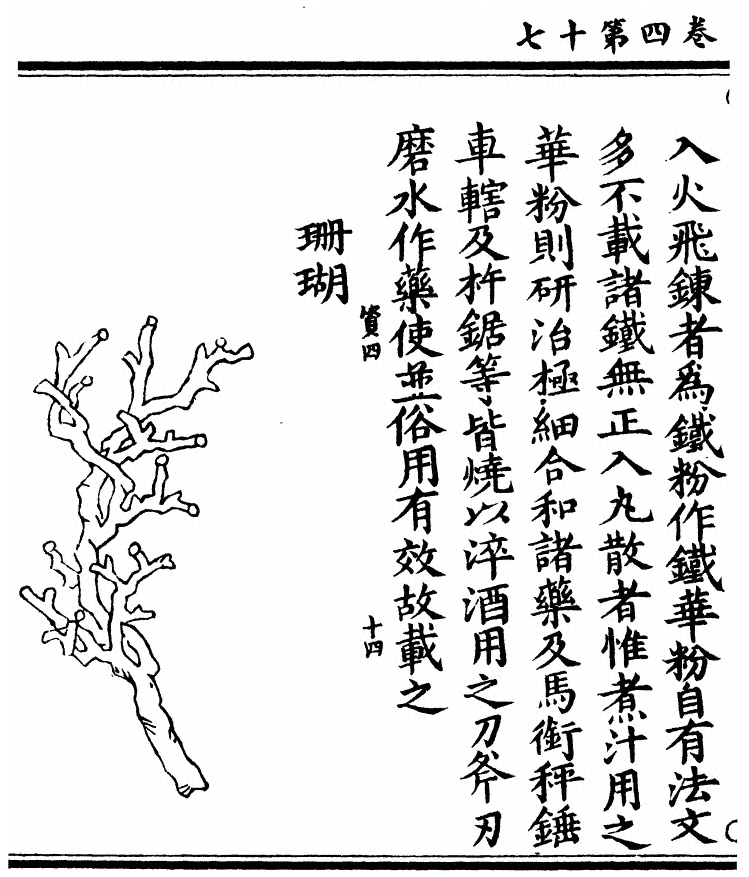 卷四第十七
入火飛鍊者爲鐵粉作鐵華粉自有法文
多不載諸鐵無正入丸散者惟煮汁用之
華粉則研治極細合和諸藥及馬銜秤錘
車轄及杵鋸等皆燒以淬酒用之刀斧刃
磨水作藥使並俗用有效故載之
資四
十四
珊瑚